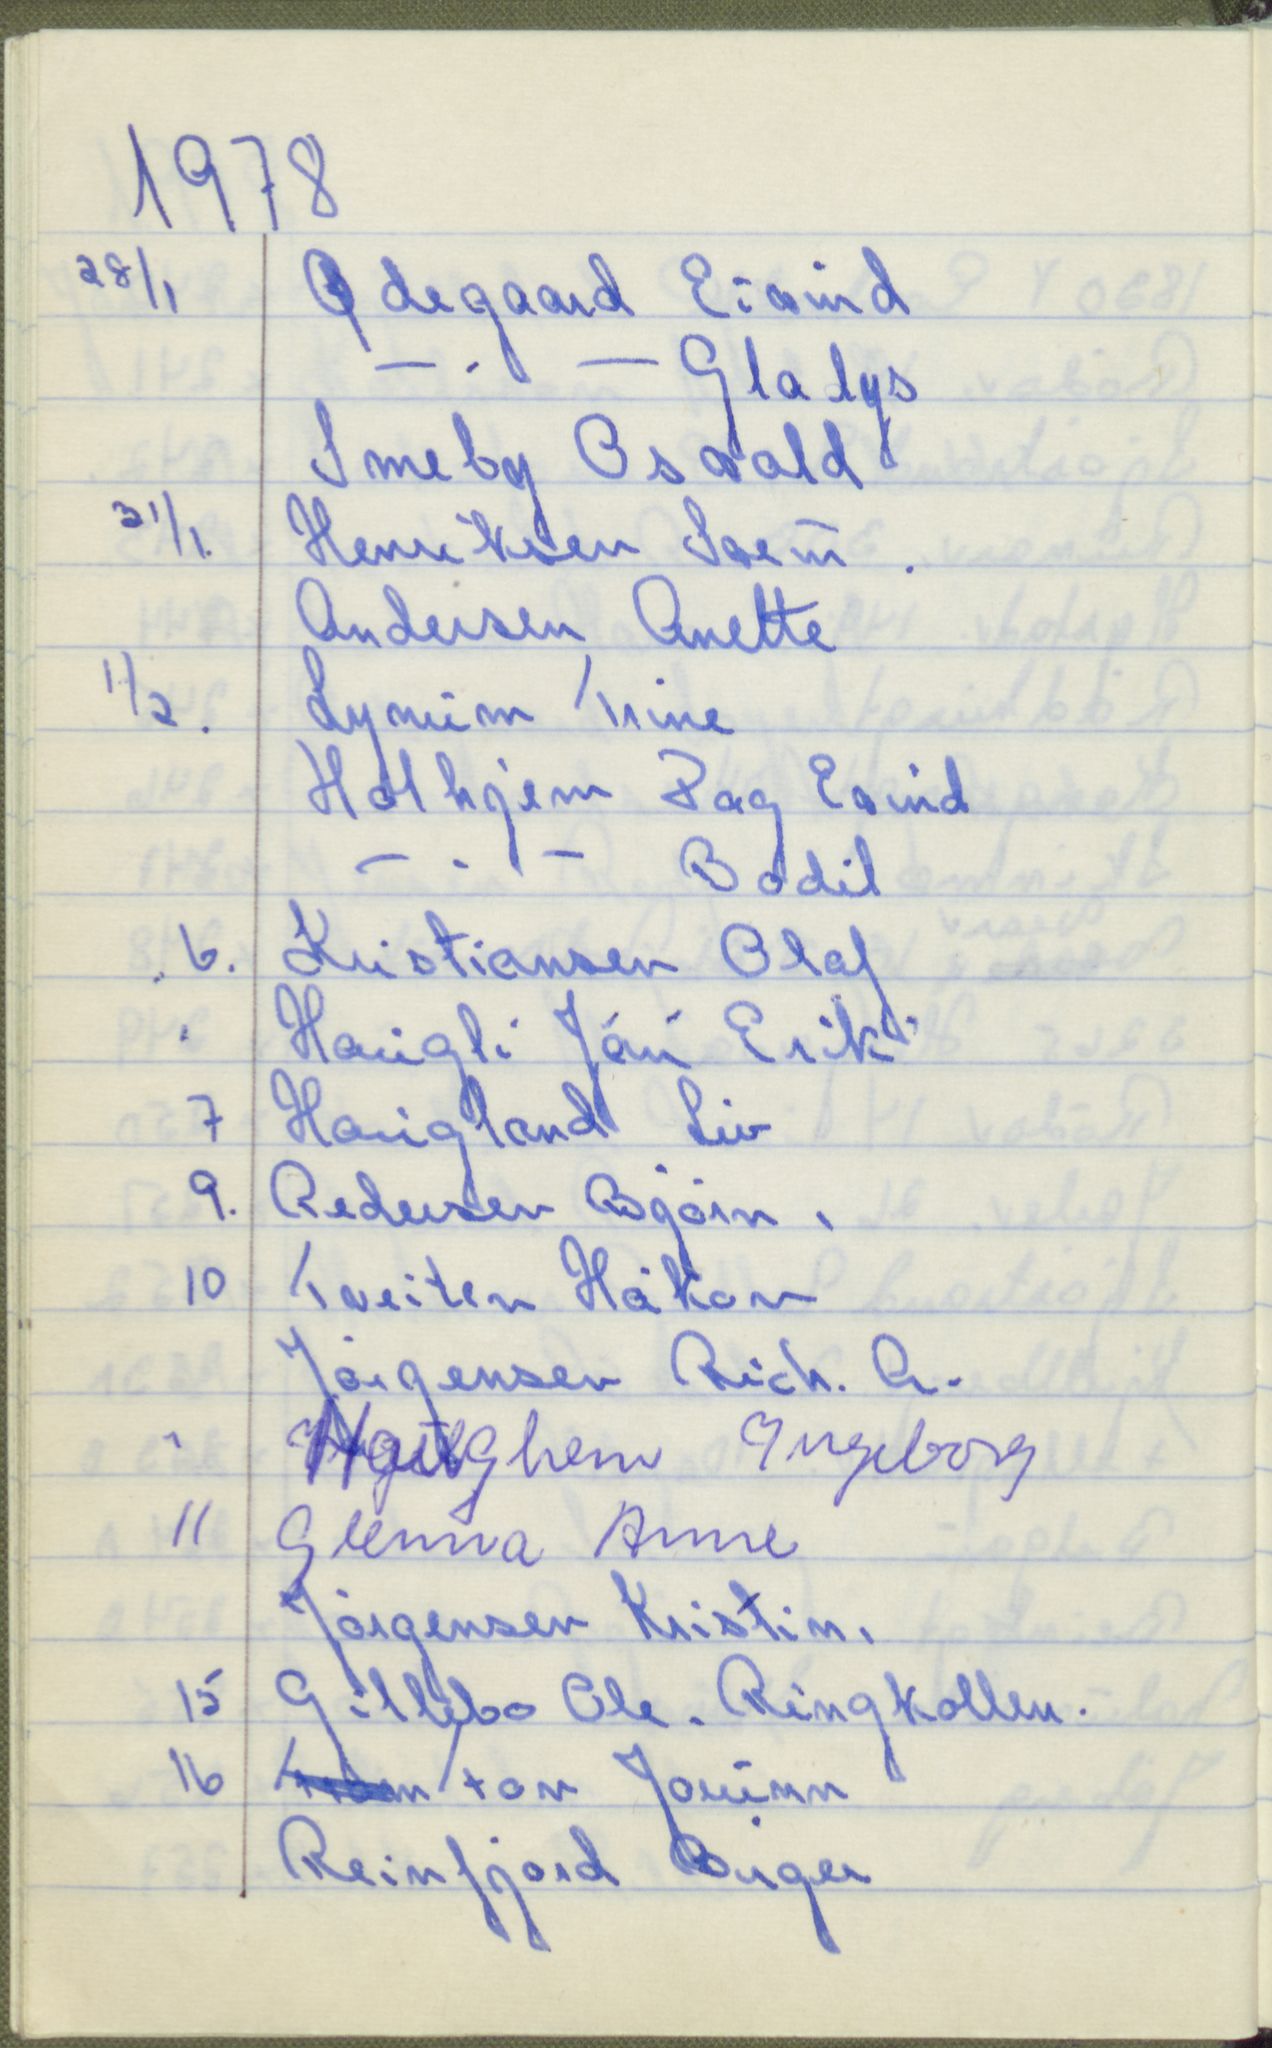 1978
28/1 Ødegaard Eivind
— . — Gladys
Smeby Osvald
31/1. Henriksen Svein.
Andersen Anette
1/2. Lynum Trine
Holhjem Dag Eivind
— . — Bodil
6. Kristiansen Olaf
Haugli Jan Erik
7 Haugland Liv
9. Pedersen Bjørn.
10 Tveiten Håkon
Jørgensen Rich. A.
Haughem Ingeborg
11 Glenna Anne
Jørgensen Kristin.
15 Gillebo Ole. Ringkollen.
16 Jorunn
Reinfjord Birger